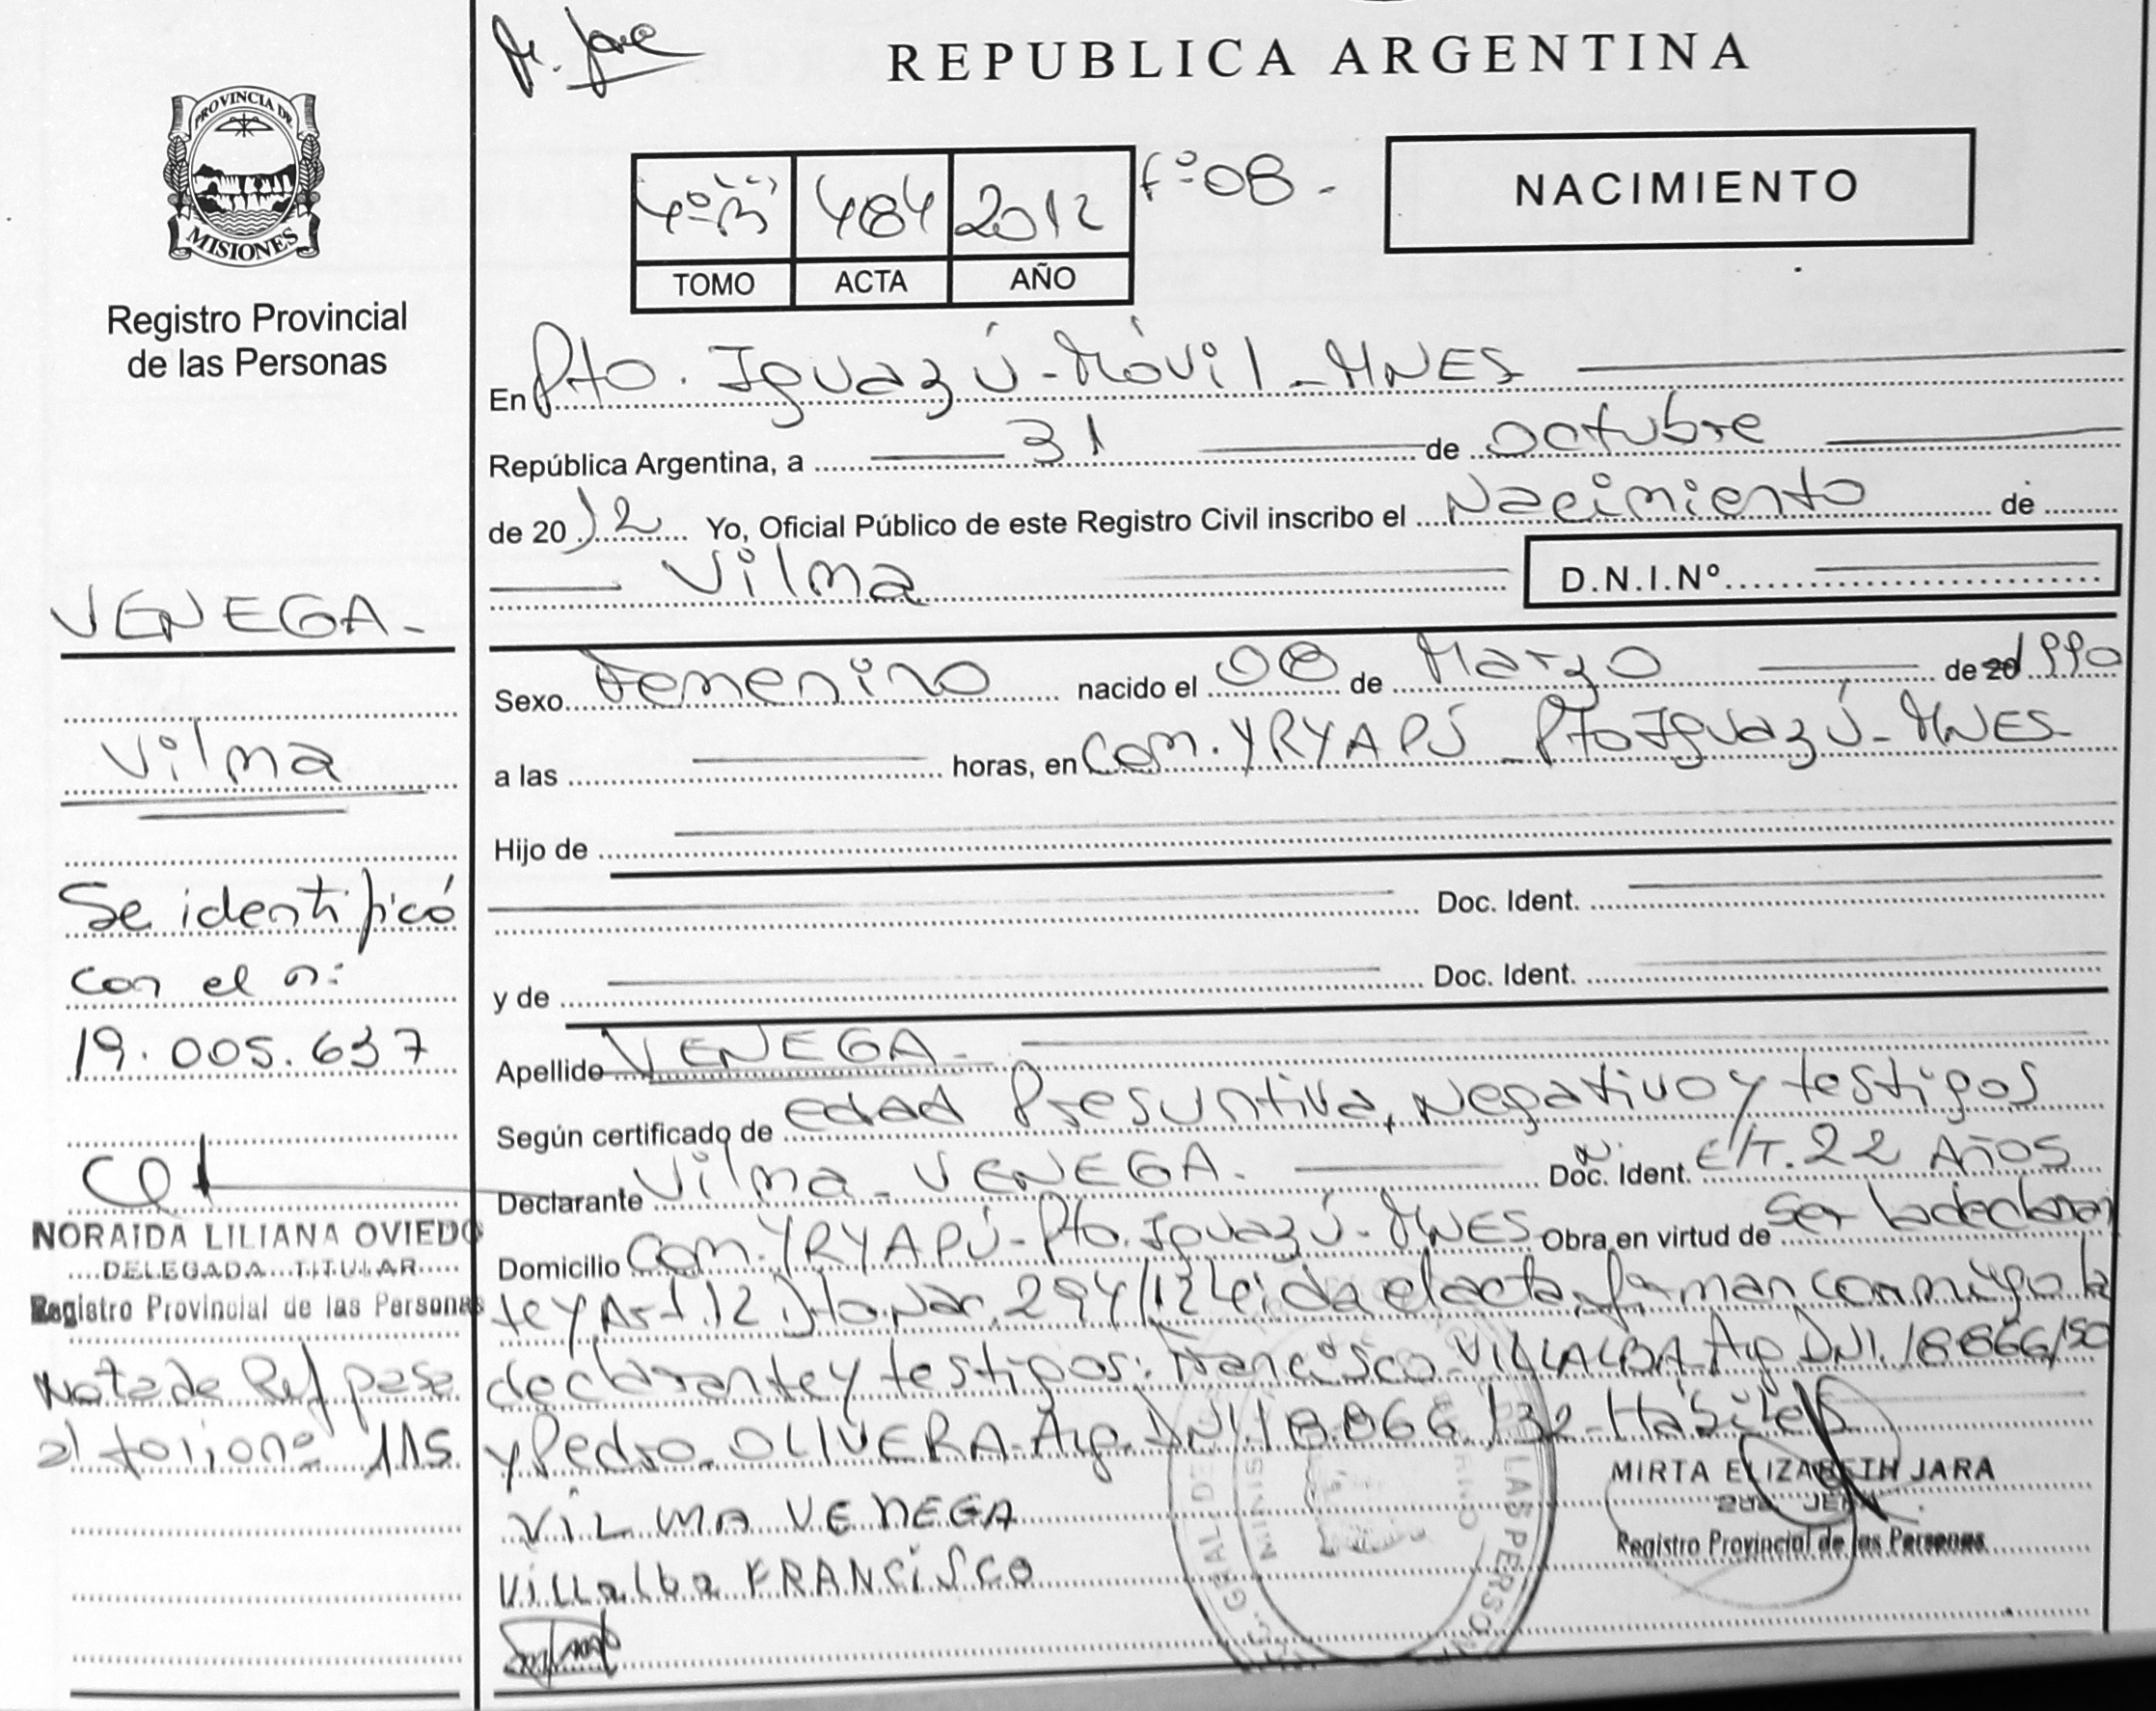 PROVINCIA DE
MISIONES
Registro Provincial
de las Personas
VENEGA-
Vilma
Se identificó
con el n:
19.005.637
NORAIDA LILIANA OVIEDO
DELEGADA TITULAR
Registro Provincial de las Personas
Nota de Ref pasa
al folio nº 115
REPUBLICA ARGENTINA
4º "B" 484 2012 fº 08-
TOMO ACTA AÑO
NACIMIENTO
En Pto. Iguazú - Móvil - MNES
República Argentina, a 31 de octubre
de 2012 Yo, Oficial Público de este Registro Civil inscribo el Nacimiento de
Vilma D.N.I.Nº
Sexo Femenino nacido el 08 de Marzo de 20 1990
a las horas, en Com. YRYAPÚ - Pto Iguazú - MNES-
Hijo de
Doc. Ident.
y de Doc. Ident.
Apellido VENEGA-
Según certificado de edad Presuntiva, Negativo y testigos
Declarante Vilma - VENEGA. Doc. Ident. C/T. 22 AÑOS
Domicilio Com. YRYAPÚ - Pto. Iguazú - MNES Obra en virtud de Ser la declaran
te y Art. 12 Dto. 294/12 Leida el acta, firman conmigo la
declarante y testigos: Francisco VILLALBA Arg. DNI. 18866150
y Pedro OLIVERA Arg. DNI. 18.866.132 - Hábiles
VILMA VENEGA
Villalba FRANCISCO
MIRTA ELIZABETH JARA
2da. JEFA
Registro Provincial de las Personas